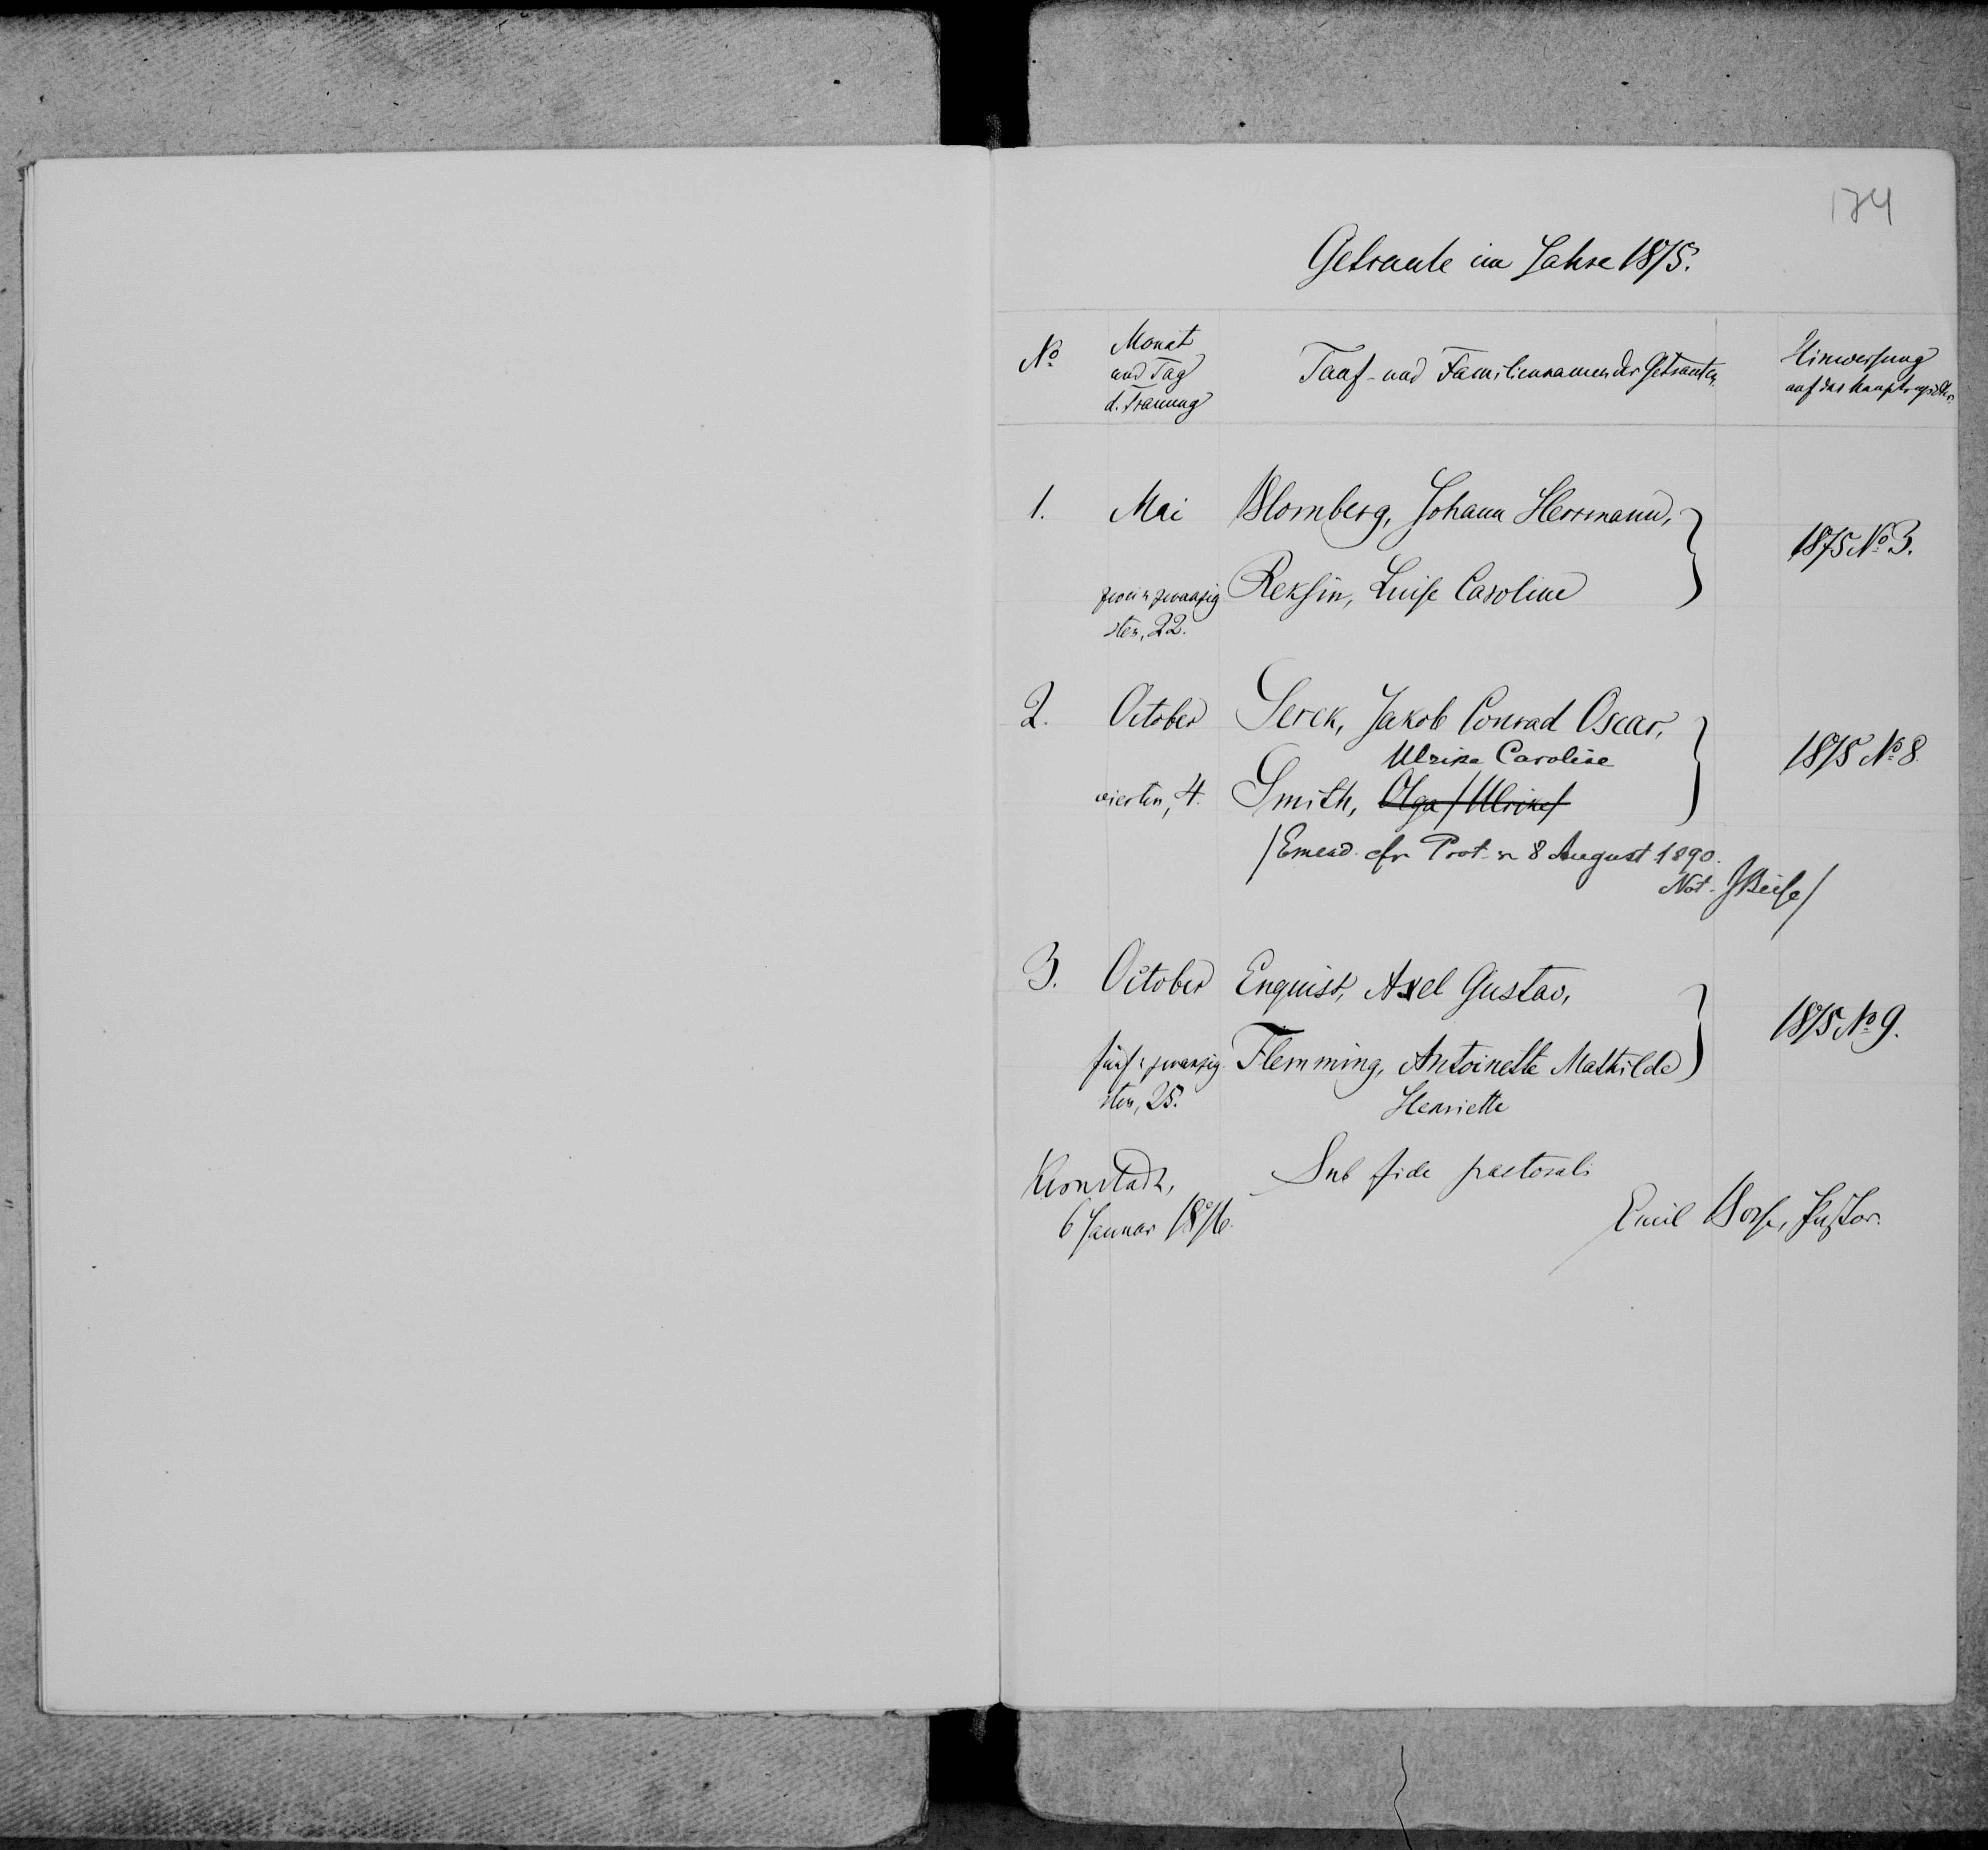 174
Getraute im Jahre 1875.
No Monat und Tag d. Trauung Tauf- und Familiennamen der Getrauten Hinweisung auf das Hauptregister.
1. Mai Blomberg, Johann Herrmann, 1875 No 3.
zwei u zwanzig Reksin, Luise Caroline
sten, 22.
2. October Serck, Jakob Conrad Oscar, 1875 No 8.
Ulrika Caroline
vierten, 4. Smith, Olga /Ulrike/
/Emend. cfr Prot. v 8 August 1890.
Not.
3. October Enquist, Axel Gustav, 1875 No 9.
fünf u zwanzig Flemming, Antoinette Mathilde
sten, 25. Henriette
Kronstadt, Sub fide pastorali
6 Januar 1876. Emil Pastor.